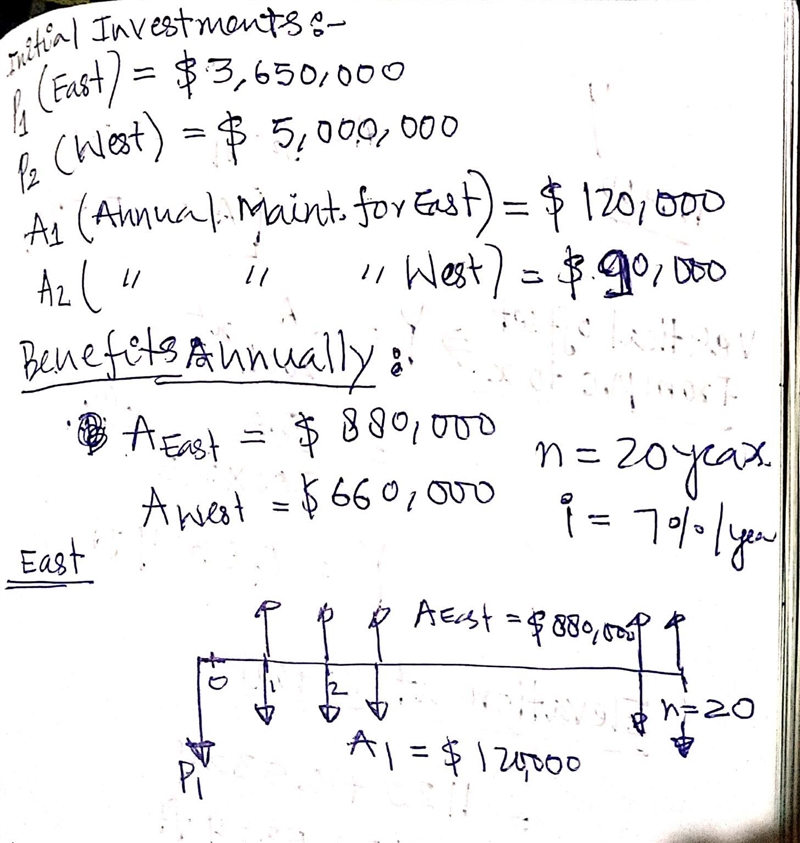 Initial Investments :-
P1 (East) = $ 3,650,000
P2 (West) = $ 5,000,000
A1 (Annual. Maint. for East) = $ 120,000
A2 ( " " " West) = $ 90,000
Benefits Annually :
A East = $ 880,000
n = 20 year.
A West = $ 660,000
i = 7%/year
East
A East = $ 880,000
0 1 2 n=20
P1
A1 = $ 120,000